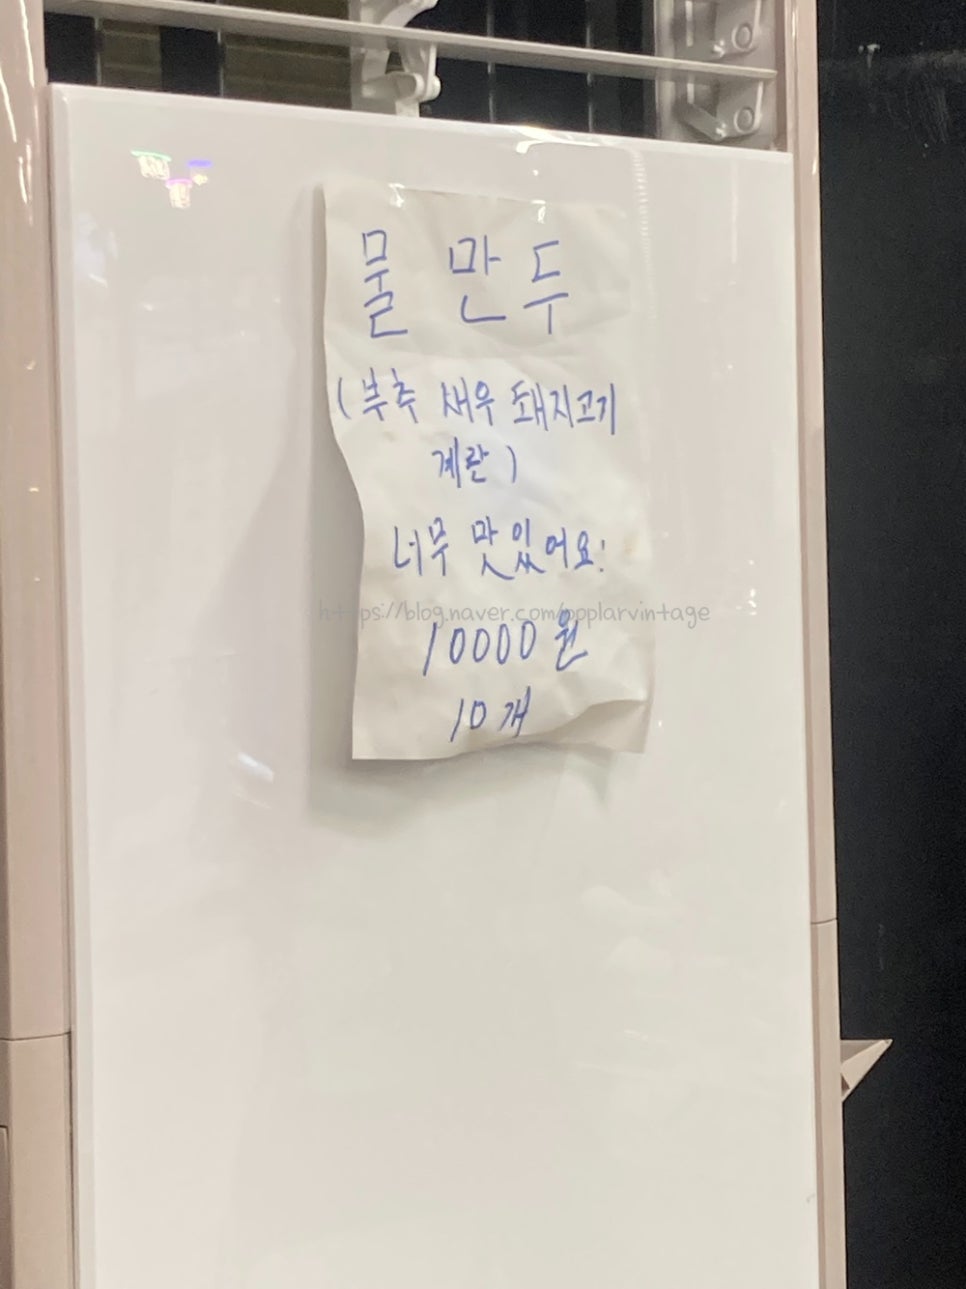 물만두
(부추 새우 돼지고기
계란)
너무 맛있어요!
https://blog.naver.com/opplarvintage
10000원
10개